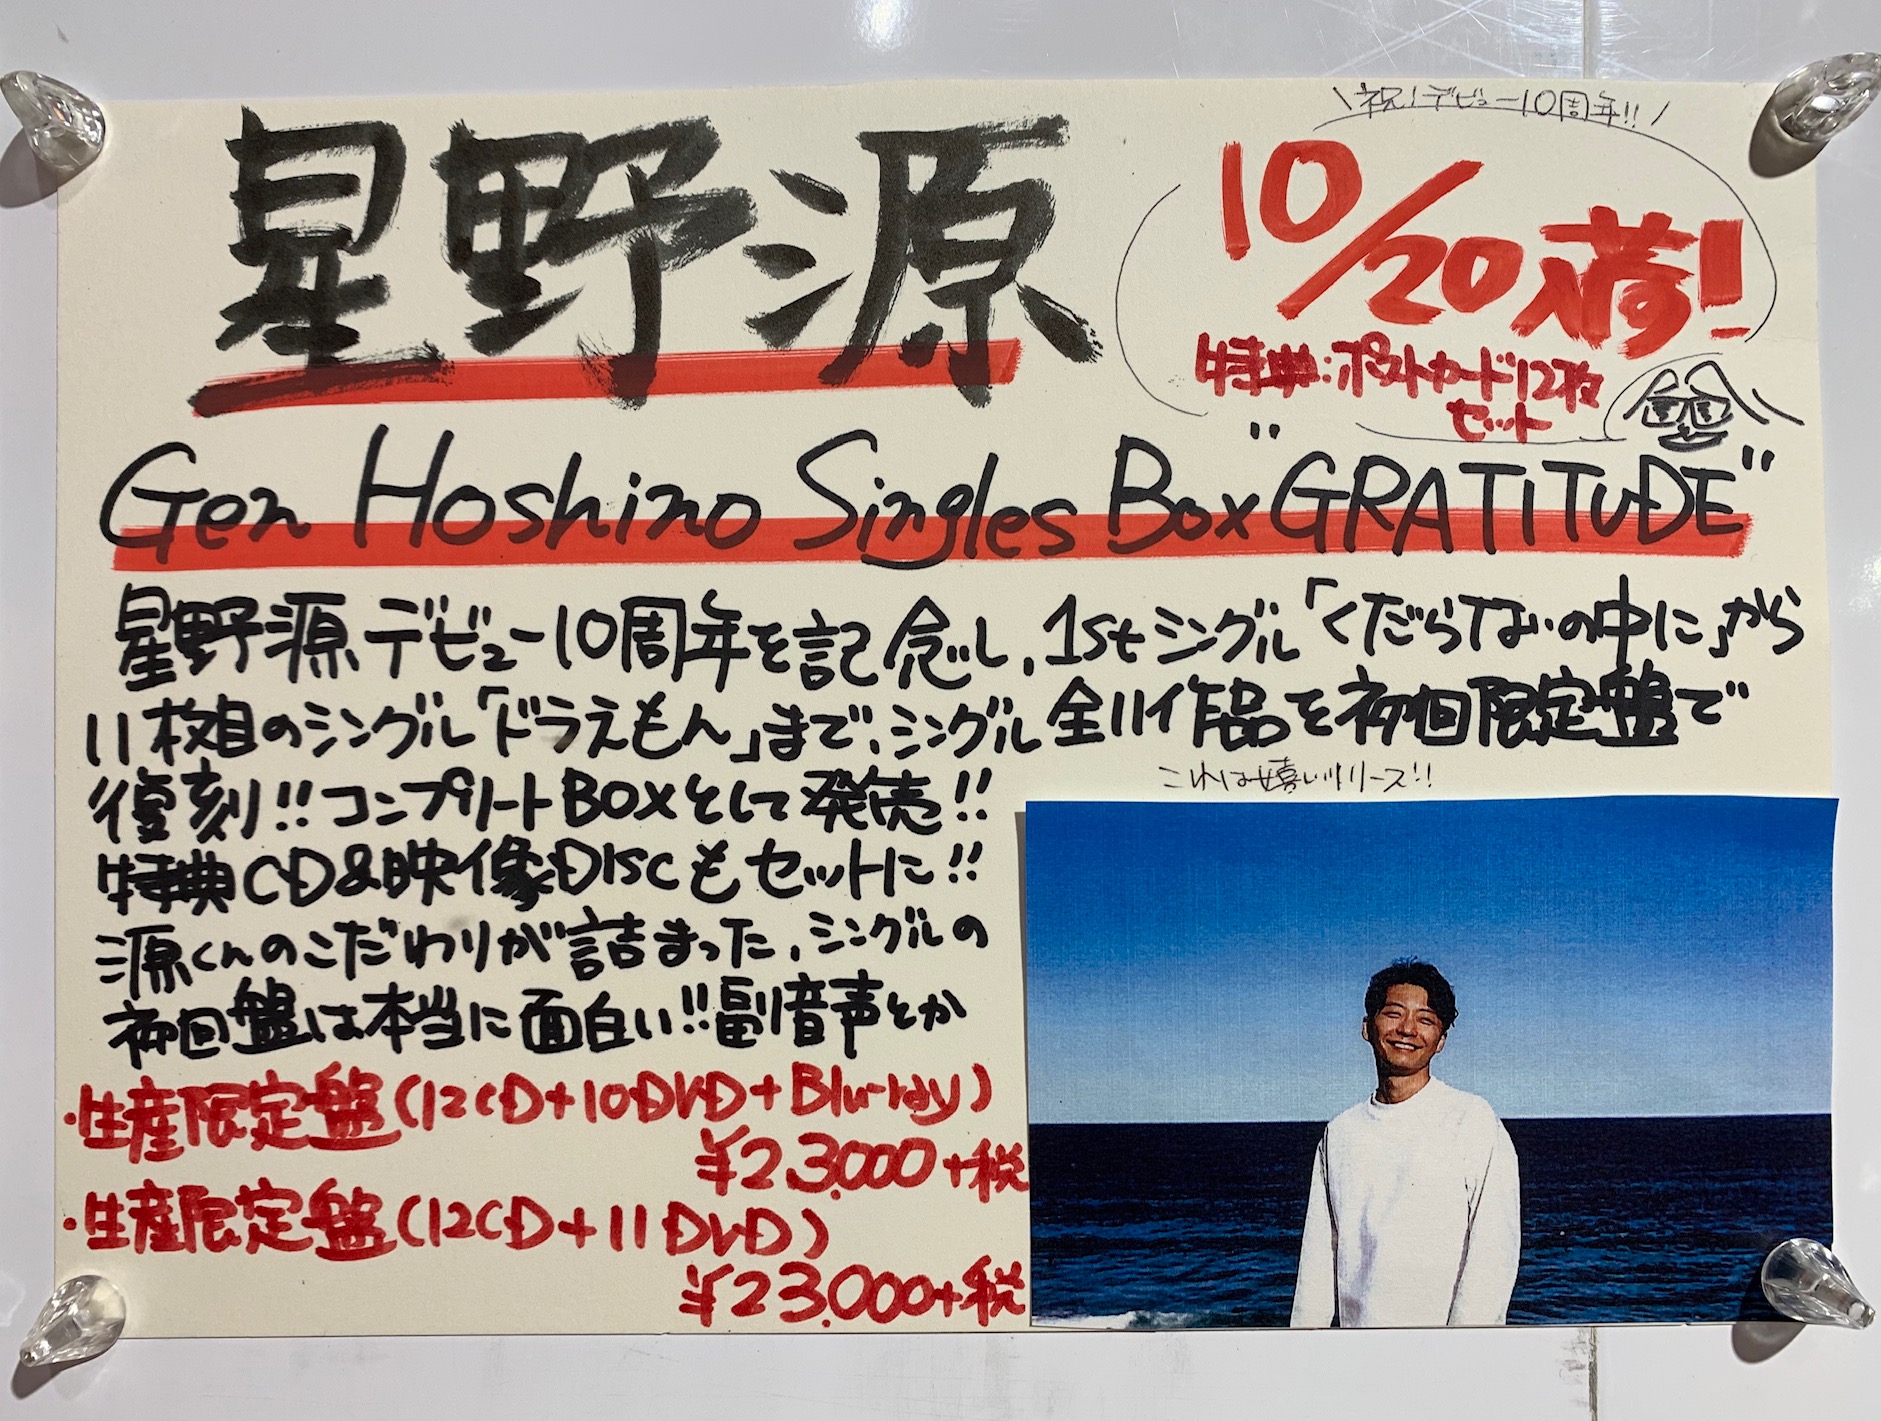 \祝!デビュー10周年!!/
星野源
10/20入荷!
特典:ポストカード12枚
セット
Gen Hoshino Singles Box "GRATITUDE"
星野源デビュー10周年を記念し、1stシングル「くだらないの中に」から
11枚目のシングル「ドラえもん」まで、シングル全11作品を初回限定盤で
復刻!!コンプリートBOXとして発売!!
これは嬉しいリリース!!
特典CD&映像Discもセットに!!
源くんのこだわりが詰まった、シングルの
初回盤は本当に面白い!!副音声とか
・生産限定盤(12CD+10DVD+Blu-ray)
¥23.000+税
・生産限定盤(12CD+11DVD)
¥23.000+税